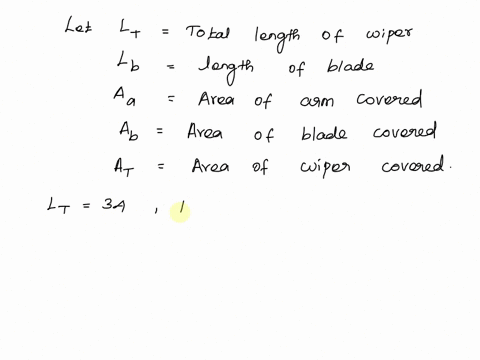 Let L_T = Total length of wiper
L_b = length of blade
A_a = Area of arm covered
A_b = Area of blade covered
A_T = Area of wiper covered.
L_T = 34 , 1